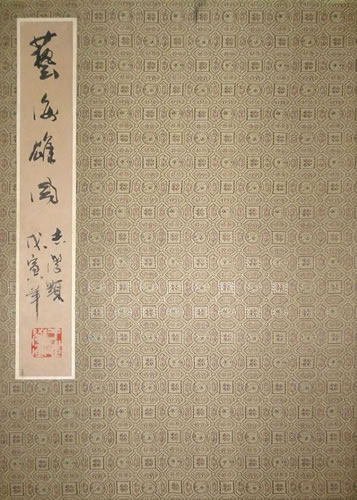 藝海雄風
志學題
戊寅年